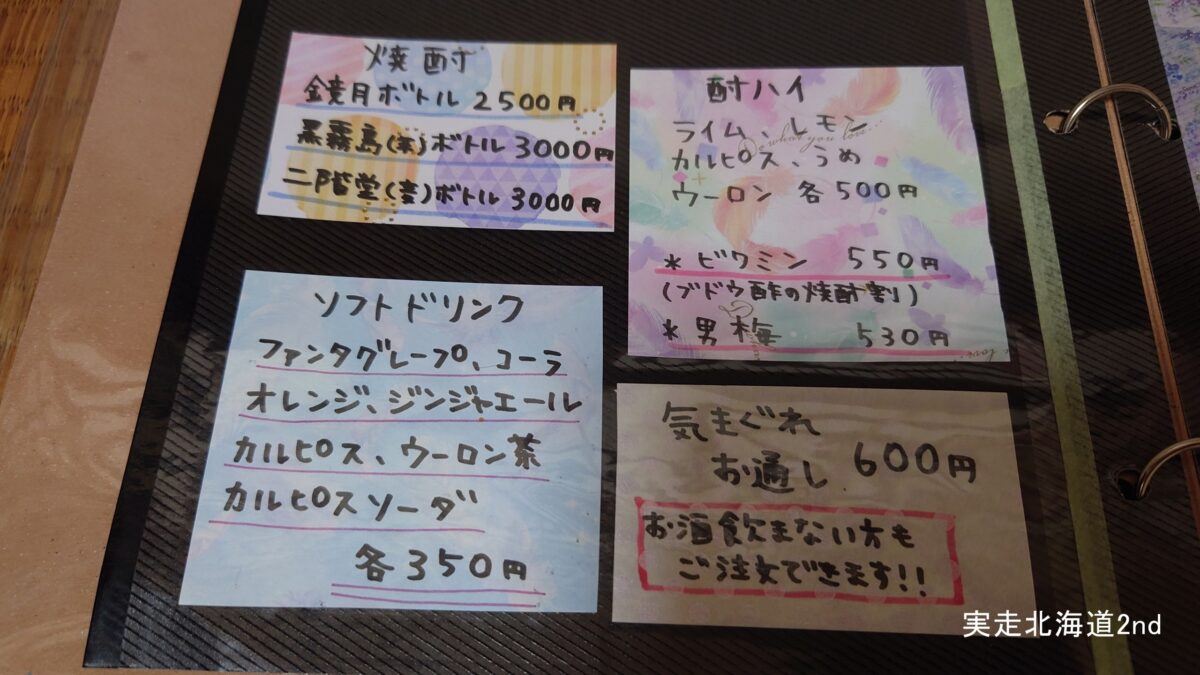 焼酎
鏡月ボトル 2500円
黒霧島(芋)ボトル 3000円
二階堂(麦)ボトル 3000円
酎ハイ
ライム、レモン
カルピス、うめ
ウーロン 各500円
＊ビワミン 550円
(ブドウ酢の焼酎割)
＊男梅 530円
ソフトドリンク
ファンタグレープ、コーラ
オレンジ、ジンジャエール
カルピス、ウーロン茶
カルピスソーダ
各350円
気まぐれ
お通し 600円
お酒飲まない方も
ご注文できます!!
実走北海道2nd